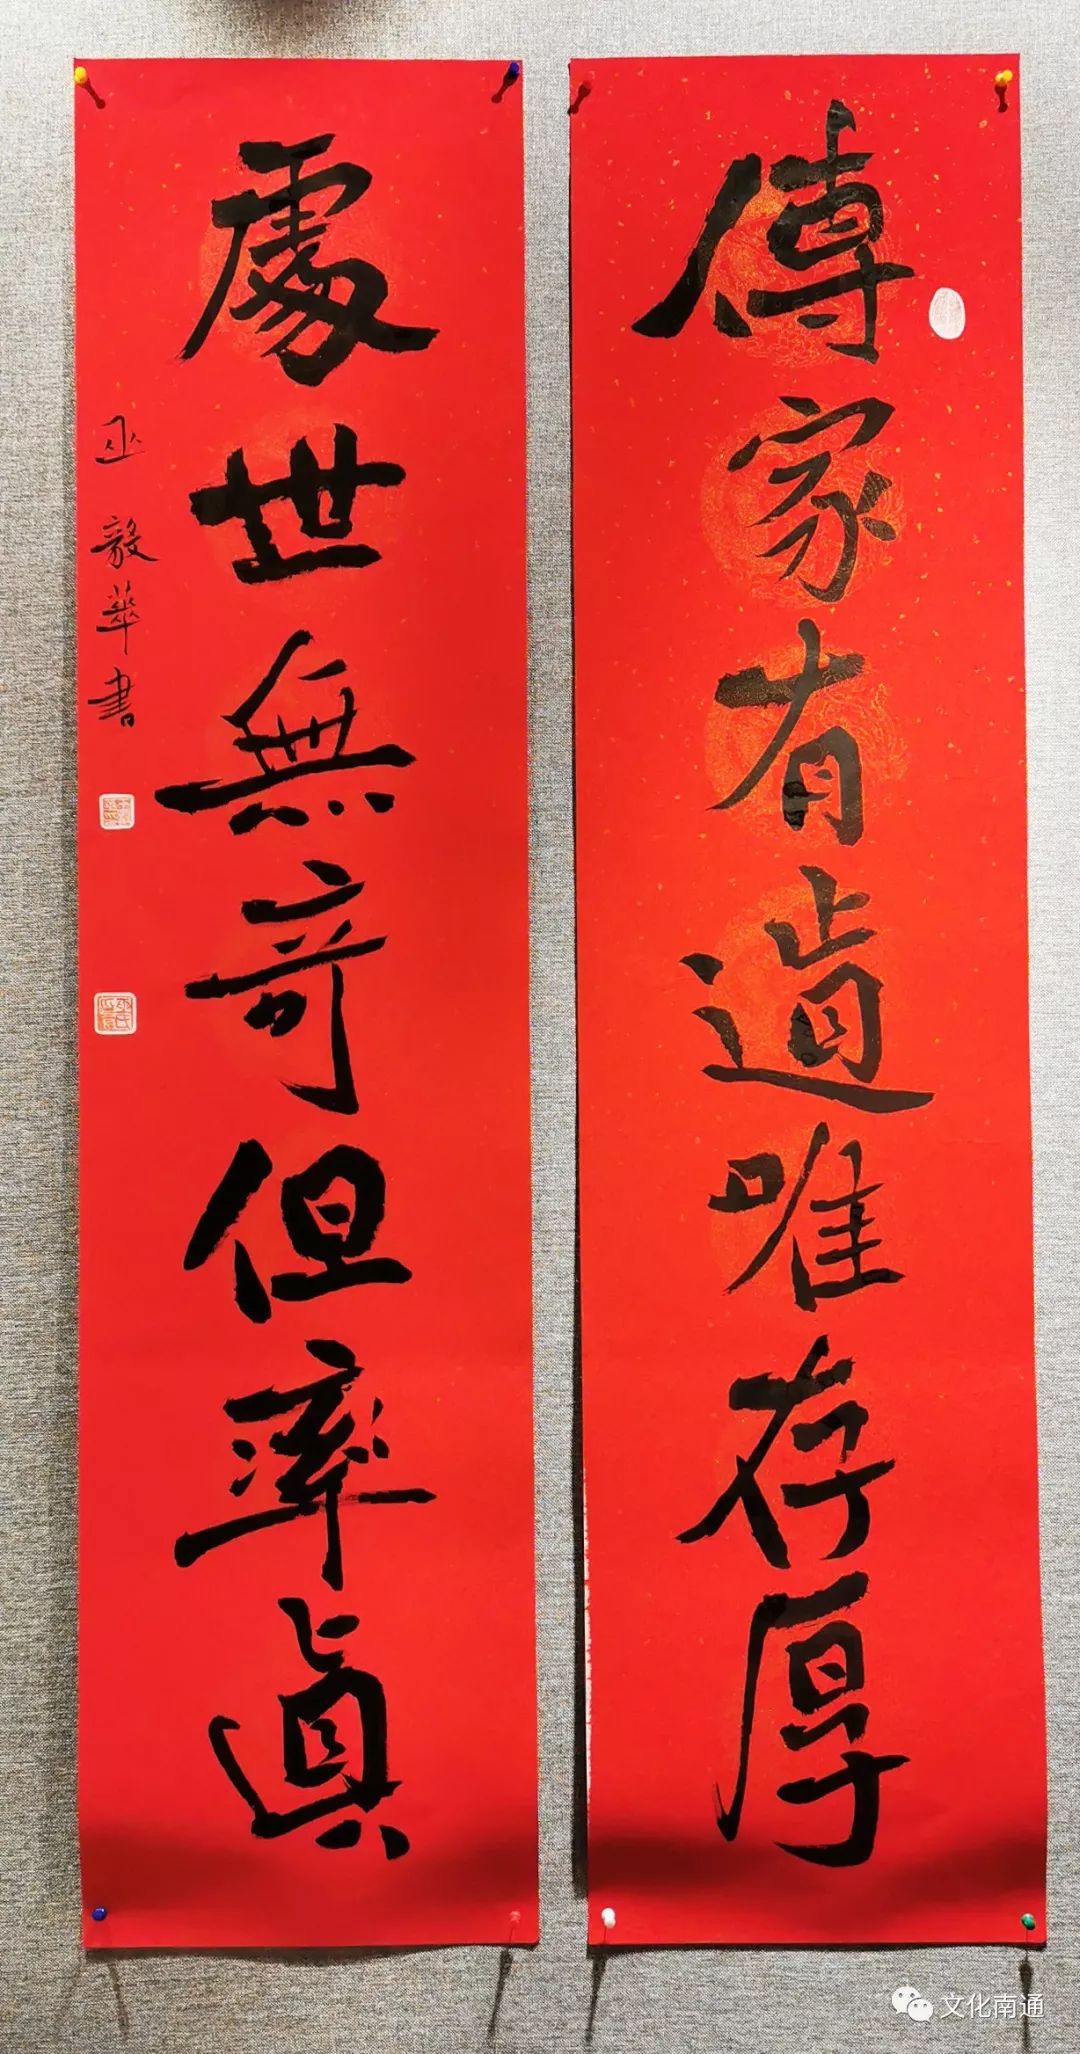 傳家有道唯存厚
處世無奇但率真
巫毅華書
文化南通